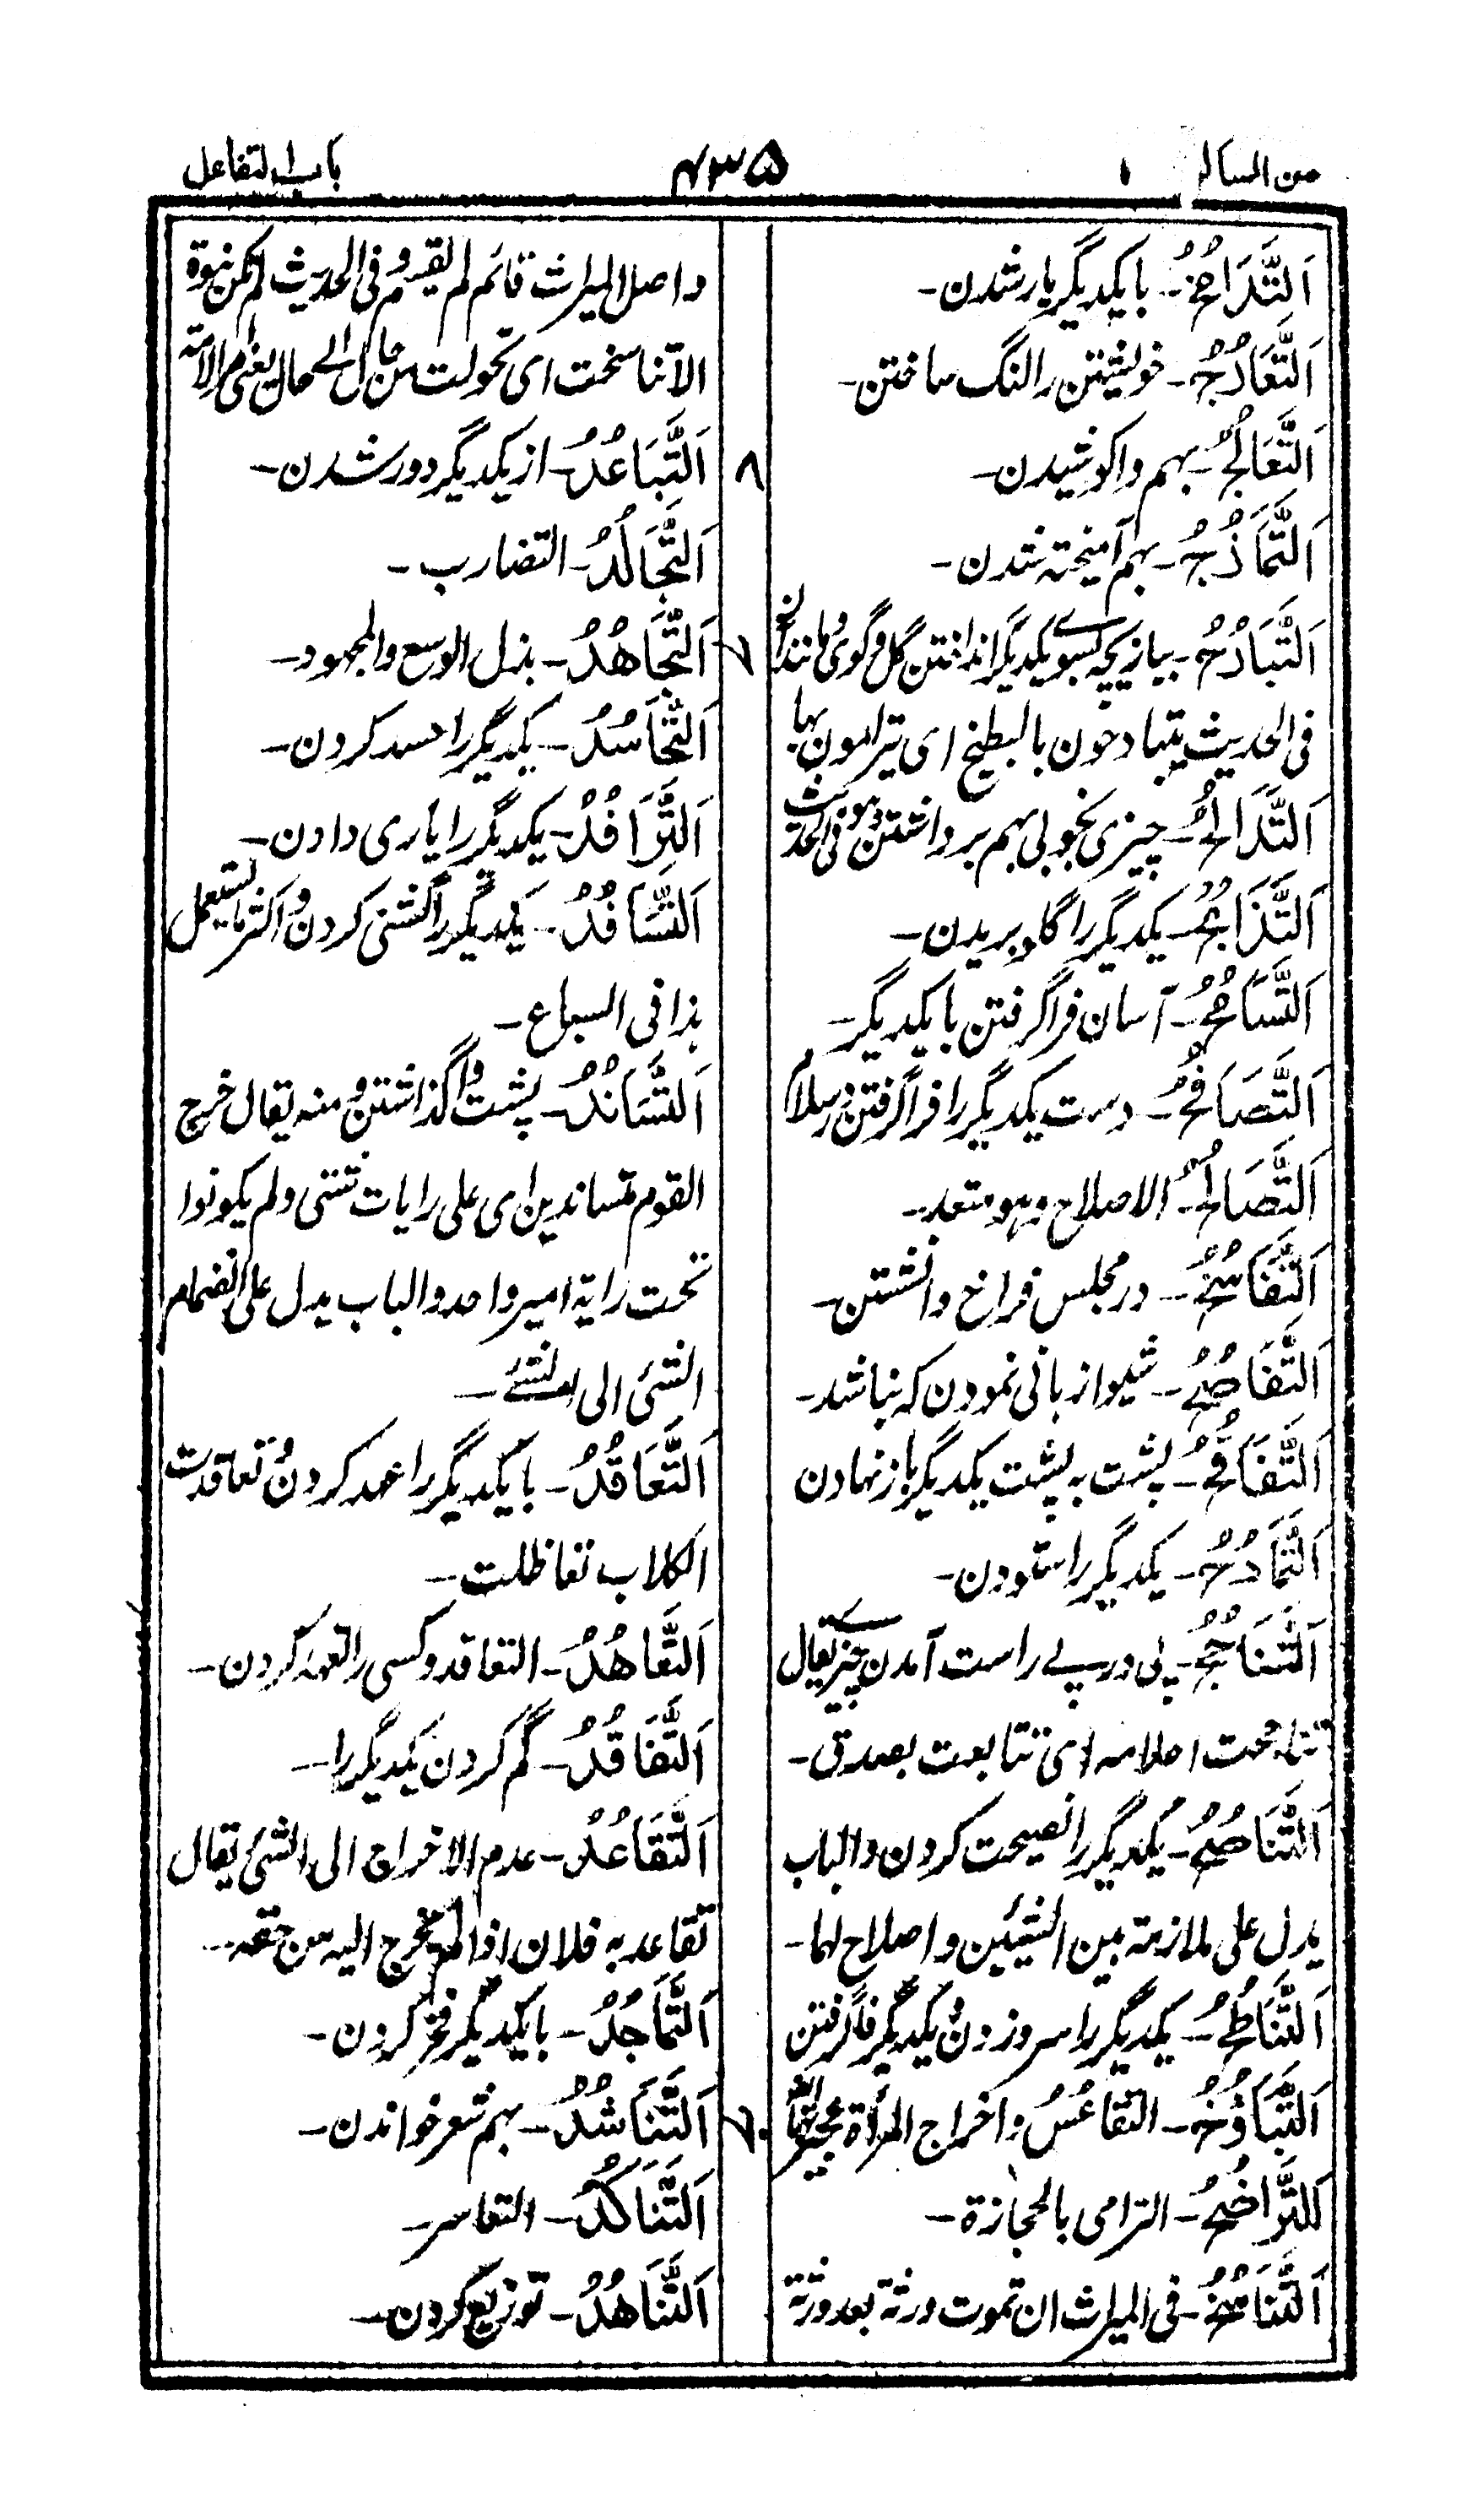 من السالم
۷۳۵
باب التفاعل
اَلتَّدَامُجُ - بایکدیگر یار شدن -
اَلتَّعَارُجُ - خویشتن را لنگ ساختن -
اَلتَّعَالُجُ - بهم واکوشیدن -
اَلتَّمَازُجُ - بهم آمیخته شدن -
اَلتَّبَادُحُ - ببازیچه بسوی یکدیگر انداختن گل و گوی و مانند آن
فی الحدیث یتبادحون بالبطیخ ای یترامون بها
اَلتَّدَالُحُ - چیزی بچوبی بهم برداشتن و هو فی الحدیث
اَلتَّذَابُحُ - یکدیگر را گلو بریدن -
اَلتَّسَامُحُ - آسان فرا گرفتن بایکدیگر -
اَلتَّصَافُحُ - دست یکدیگر را فرا گرفتن در سلام
اَلتَّصَالُحُ - الاصلاح و هو متعد -
اَلتَّفَاسُحُ - در مجلس فراخ وا نشستن -
اَلتَّفَاصُحُ - شیوا زبانی نمودن که نباشد -
اَلتَّفَاقُحُ - پشت به پشت یکدیگر باز نهادن
اَلتَّمَادُحُ - یکدیگر را ستودن -
اَلتَّنَاجُحُ - پی در پے راست آمدن چیزے یقال
تناجحت احلامه ای تتابعت بصدق -
اَلتَّنَاصُحُ - یکدیگر را نصیحت کردن و الباب
یدل علی ملازمة بین الشیئین و اصلاح لها -
اَلتَّنَاطُحُ - یکدیگر را سرو زدن و یکدیگر فا گرفتن
اَلتَّبَازُخُ - التقاعُسُ و اخراج المرأة عجیزتها
اَلتَّرَاضُخُ - الترامی بالحجارة -
اَلتَّنَاسُخُ - فی المیراث ان تموت ورثة بعد ورثة
و اصل المیراث قائم لم یقسم و فی الحدیث لم تکن نبوة
الا تناسخت ای تحولت من حال الی حال یعنی امر الامة
اَلتَّبَاعُدُ - از یکدیگر دور شدن -
۸
اَلتَّجَالُدُ - التضارب -
اَلتَّجَاهُدُ - بذل الوسع و المجهود -
اَلتَّحَاسُدُ - یکدیگر را حسد کردن -
اَلتَّرَافُدُ - یکدیگر را یاری دادن -
اَلتَّسَافُدُ - یکدیگر را گشنی کردن و اکثر ما یستعمل
هذا فی السباع -
اَلتَّسَانُدُ - پشت وا گذاشتن و منه یقال خرج
القوم متساندین ای علی رایات شتی و لم یکونوا
تحت رایة امیر واحد و الباب یدل علی انضمام
الشئ الی الشئ -
اَلتَّعَاقُدُ - بایکدیگر را عهد کردن و تعاقدت
الکلاب تعاظلت -
اَلتَّعَاهُدُ - التعاقد و کسی را تعهد کردن -
اَلتَّفَاقُدُ - گم کردن یکدیگر را -
اَلتَّقَاعُدُ - عدم الاخراج الی الشئ یقال
تقاعد به فلان اذا لم یخرج الیه من حقه -
اَلتَّمَاجُدُ - بایکدیگر فخر کردن -
اَلتَّنَاشُدُ - بهم شعر خواندن -
اَلتَّنَاکُدُ - التعاسر -
اَلتَّنَاهُدُ - توزیع کردن -